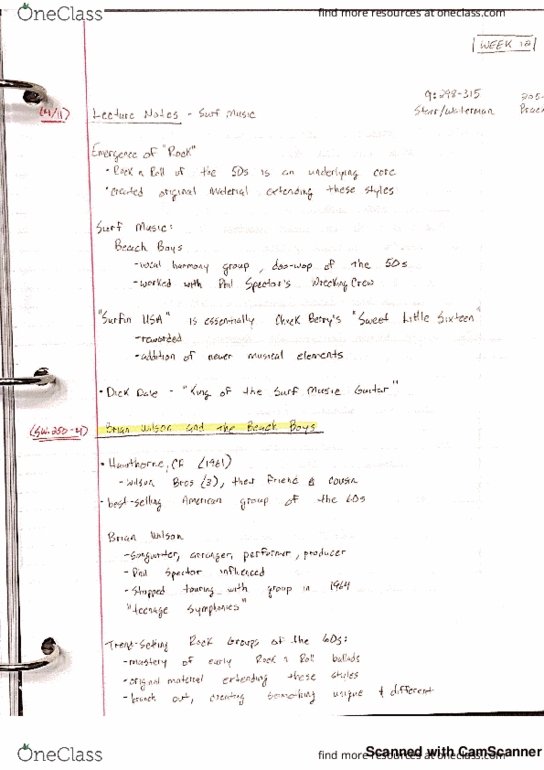 OneClass
find more resources at oneclass.com
WEEK 12
9: 298-315
(4/11) Lecture Notes - Surf Music
Starr/Waterman
Emergence of "Rock"
• Rock n Roll of the 50s is an underlying core
• created original material extending these styles
Surf Music:
Beach Boys
- vocal harmony group, doo-wop of the 50s
- worked with Phil Spector's Wrecking Crew
"Surfin USA" is essentially Chuck Berry's "Sweet Little Sixteen"
- reworded
- addition of newer musical elements
• Dick Dale - "King of the Surf Music Guitar"
Brian Wilson and the Beach Boys
• Hawthorne, CA (1961)
- Wilson Bros (3), their friend & cousin
- best-selling American group of the 60s
Brian Wilson
- Songwriter, arranger, performer, producer
- Phil Spector influenced
- Stopped touring with group in 1964
"teenage symphonies"
Trend-Setting Rock Groups of the 60s:
- mastery of early Rock n Roll ballads
- original material extending these styles
- branch out, creating something unique & different
OneClass
find more resources at oneclass.com
Scanned with CamScanner